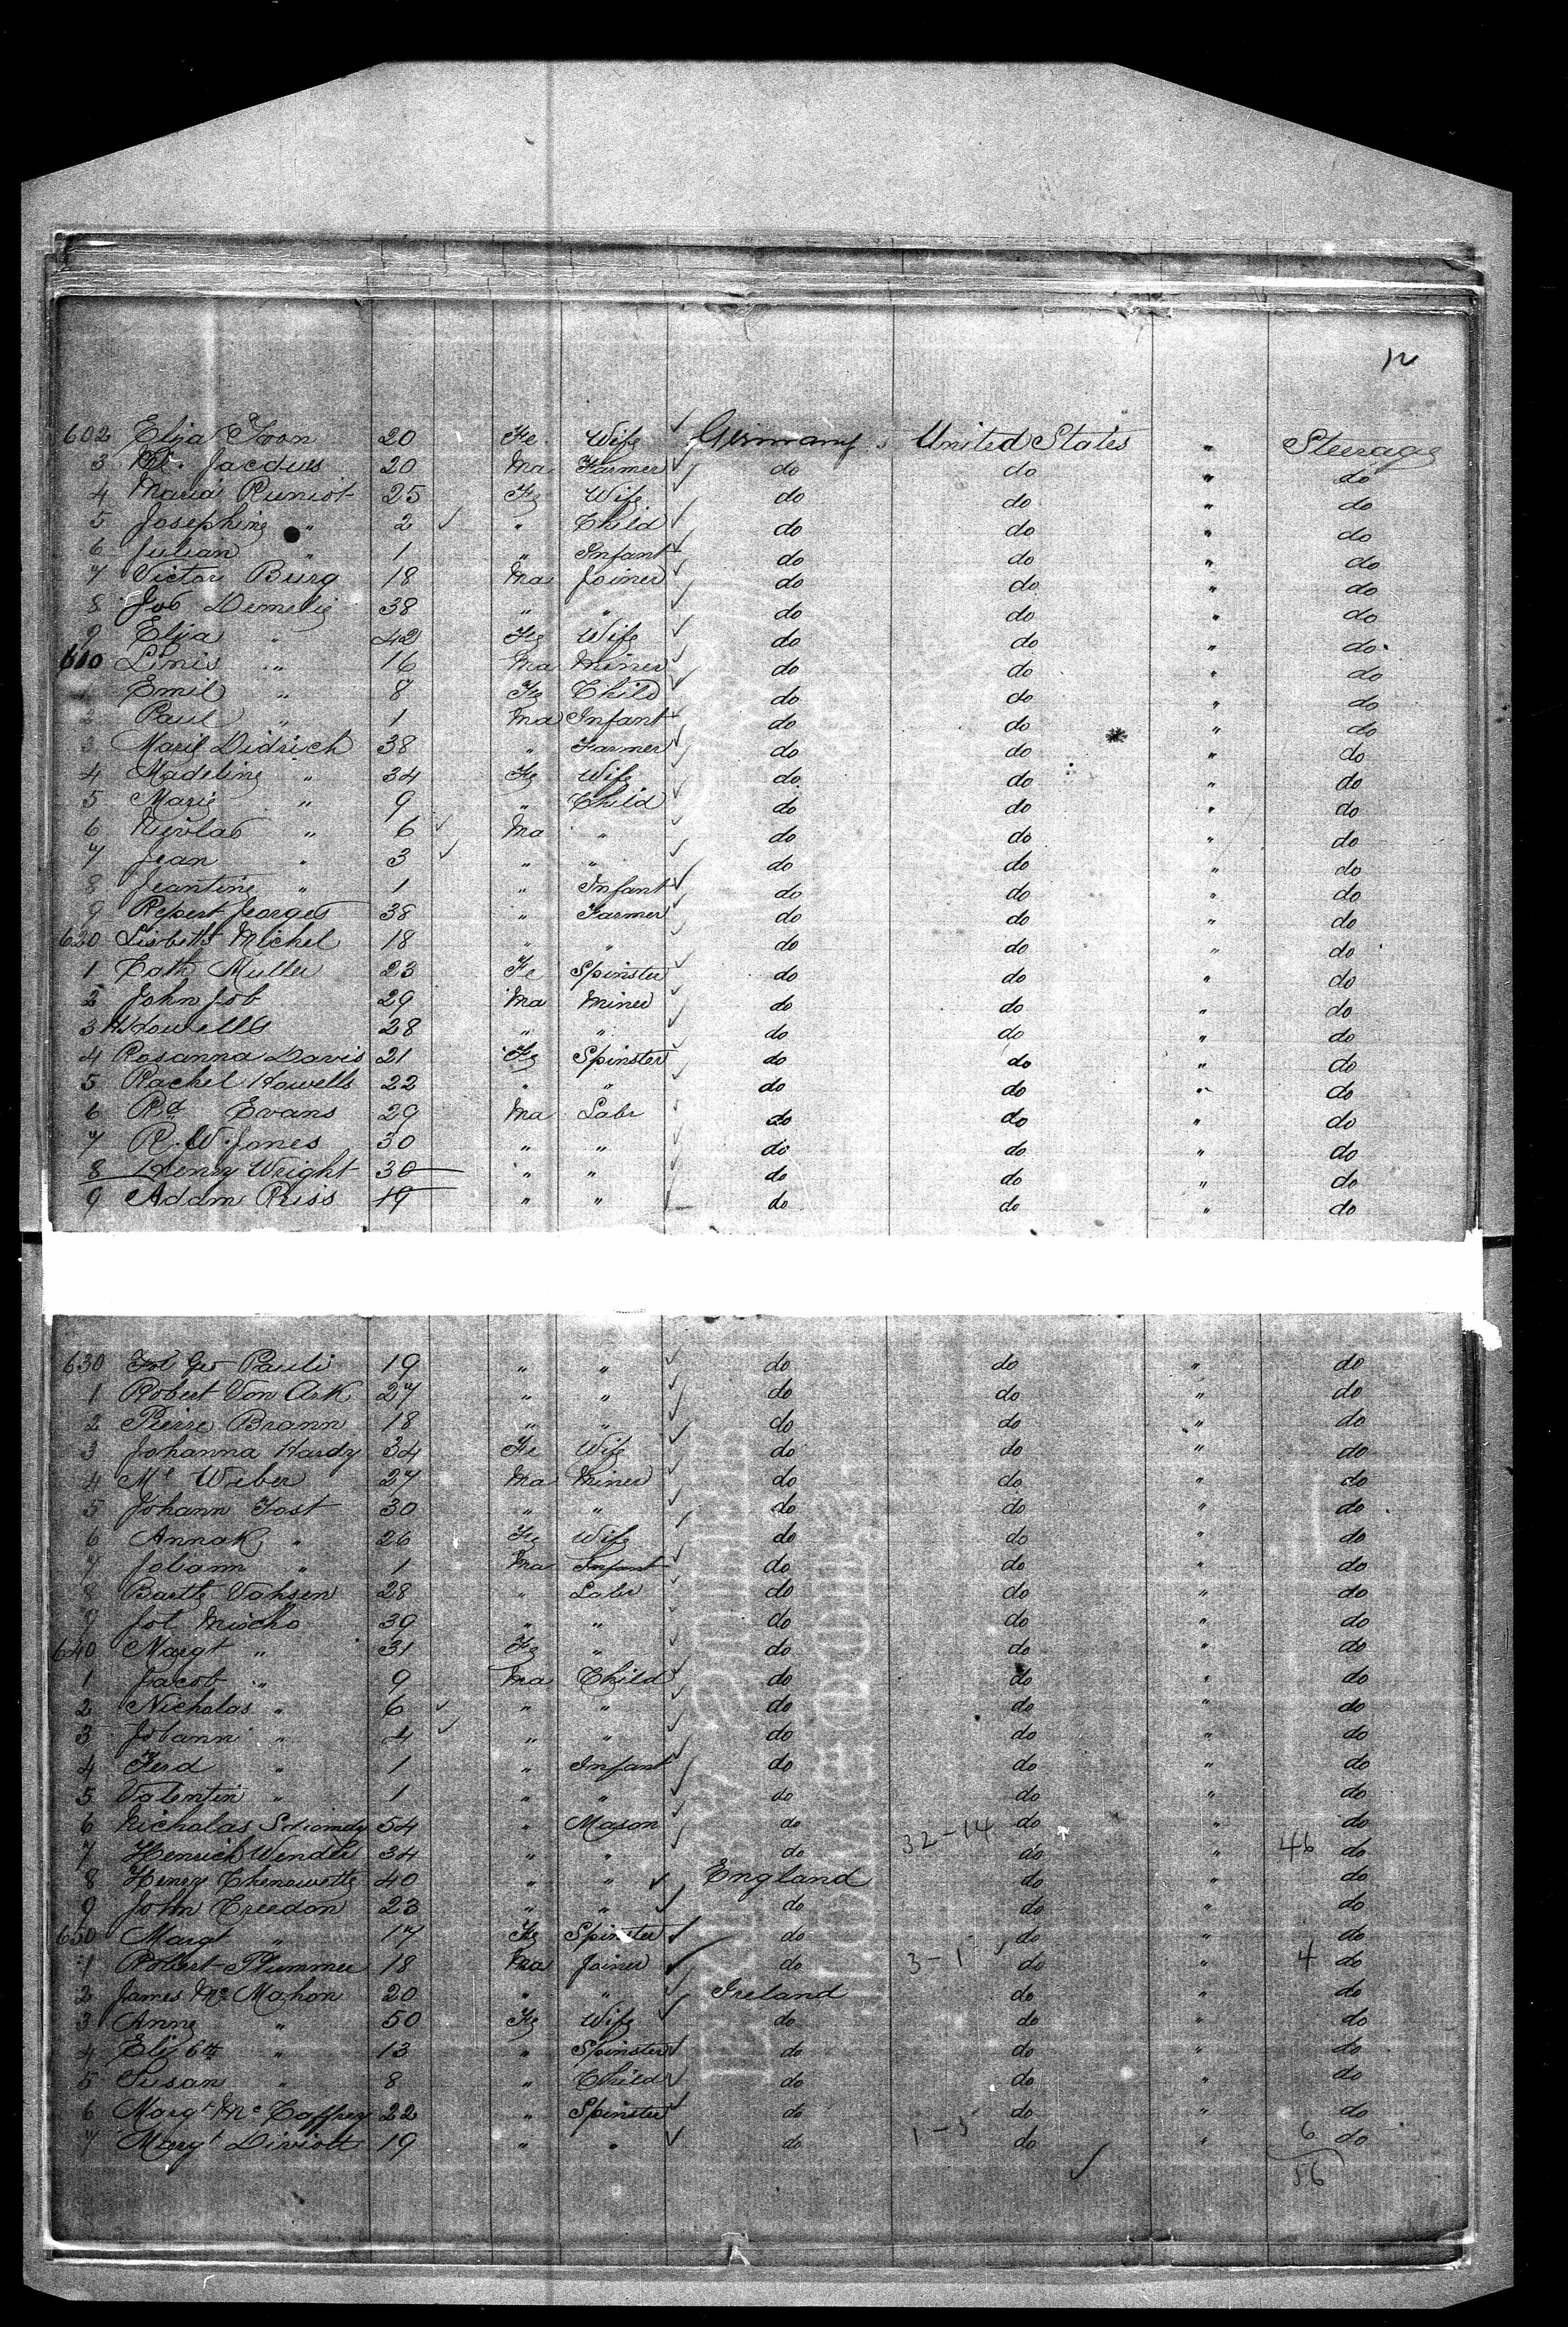 12
602 Eliza Toon 20 Fe. Wife Germany United States " Steerage
3 Jacques 20 Ma Farmer do do " do
4 Maria Runiot 25 Fe Wife do do " do
5 Josephine " 2 " Child do do " do
6 Julian " 1 " Infant do do " do
7 Victor Burg 18 Ma Joiner do do " do
8 Jos Demelie 38 " " do do " do
9 Eliza " 42 Fe Wife do do " do
610 Linis " 16 Ma Miner do do " do
1 Emil " 8 Fe Child do do " do
2 Paul " 1 Ma Infant do do " do
3 Didrich 38 " Farmer do do " do
4 Madeline " 34 Fe Wife do do " do
5 Marie " 9 " Child do do " do
6 " 6 Ma " do do " do
7 Jean " 3 " " do do " do
8 Jeantine " 1 " Infant do do " do
9 Repert Georges 38 " Farmer do do " do
620 Lisbeth Michel 18 " " do do " do
1 Cath Muller 23 Fe Spinster do do " do
2 John Job 29 Ma Miner do do " do
3 Howells 28 " " do do " do
4 Rosanna Davis 21 Fe Spinster do do " do
5 Rachel Howells 22 " " do do " do
6 Rd Evans 29 Ma Labr do do " do
7 R. W. Jones 30 " " do do " do
8 Henry Wright 30 " " do do " do
9 Adam Reiss 19 " " do do " do
630 Geo Pauli 19 " " do do " do
1 Robert Von Ark 27 " " do do " do
2 Pierre Brann 18 " " do do " do
3 Johanna Hardy 34 Fe Wife do do " do
4 Mt Weber 27 Ma Miner do do " do
5 Johann Jost 30 " " do do " do
6 Anna K " 26 Fe Wife do do " do
7 Johann " 1 Ma Infant do do " do
8 Barth Vahsen 28 " Labr do do " do
9 Joh Mischo 39 " " do do " do
640 Margt " 31 Fe " do do " do
1 Jacob " 9 Ma Child do do " do
2 Nicholas " 6 " " do do " do
3 Johann " 4 " " do do " do
4 Ferd " 1 " Infant do do " do
5 Valentin " 1 " " do do " do
6 Nicholas 54 " Mason do 32-14 do " do
7 Henrich Wendle 34 " " do do " 46 do
8 Henry Chenowette 40 " " England do " do
9 John Creedon 23 " " do do " do
650 Margt " 17 Fe Spinster do do " do
1 Robert Plummer 18 Ma Joiner do 3-1 do " 4 do
2 James Mc Mahon 20 " " Ireland do " do
3 Anne " 50 Fe Wife do do " do
4 Elizbth " 13 " Spinster do do " do
5 Susan " 8 " Child do do " do
6 Margt Mc Caffrey 22 " Spinster do do " do
7 Margt Diviott 19 " " do 1-5 do " 6 do
56